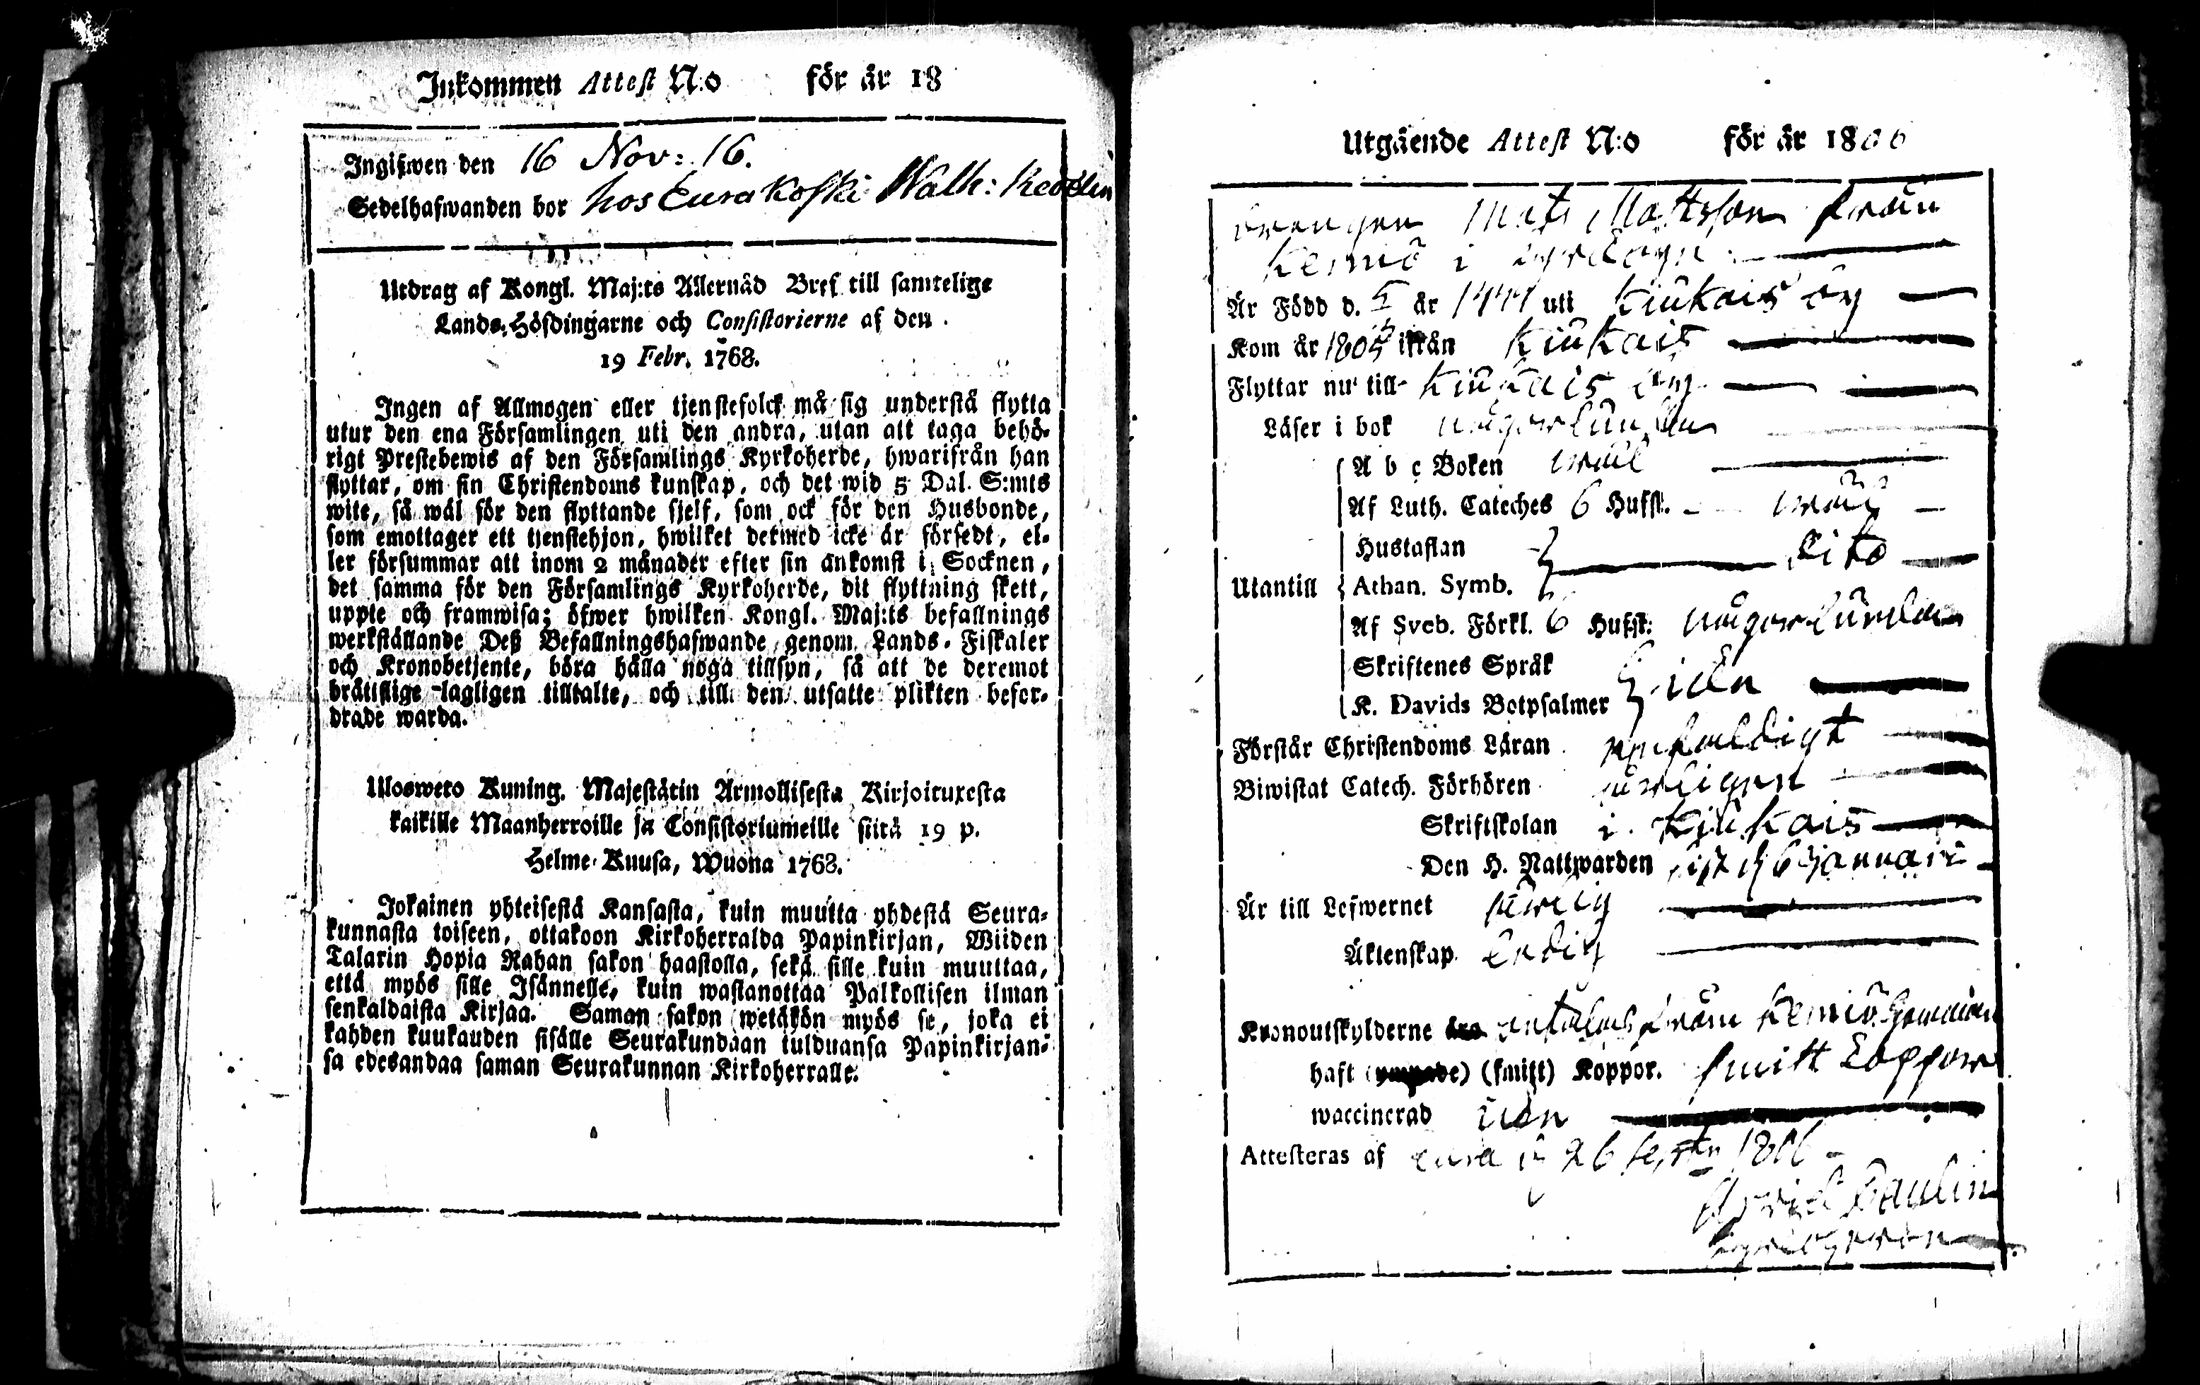 Inkommen Attest N:o för år 18
Ingifwen den 16 Nov: 16.
Sedelhafwanden bor hos Eurakoski Walh:
Utdrag af Kongl. Maj:ts Allernåd Bref till samtelige
Lands-Höfdingarne och Consistorierne af den
19 Febr. 1768.
Ingen af Allmogen eller tjenstefolck må sig understå flytta
utur den ena Församlingen uti den andra, utan att taga behö-
rigt Prestebewis af den Församlings Kyrkoherde, hwarifrån han
flyttar, om sin Christendoms kunskap, och det wid 5 Dal. S:mts
wite, så wäl för den flyttande sjelf, som ock för den Husbonde,
som emottager ett tjenstehjon, hwilket dermed icke är försedt, el-
ler försummar att inom 2 månader efter sin ankomst i Socknen,
det samma för den Församlings Kyrkoherde, dit flyttning skett,
uppte och framwisa; öfwer hwilken Kongl. Maj:ts befallnings
werkställande Deß Befallningshafwande genom Lands-Fiskaler
och Kronobetjente, böra hålla noga tillsyn, så att de deremot
bråttslige lagligen tilltalte, och till den utsatte plikten befor-
drade warda.
Uloswero Kuning. Majestätin Armollisesta Kirjoituxesta
kaikille Maanherroille ja Consistoriumeille siitä 19 p.
Helme-Kuusa, Wuona 1768.
Jokainen yhteisestä Kansasta, kuin muutta yhdestä Seura-
kunnasta toiseen, ottakoon Kirkoherralda Papinkirjan, Wiiden
Talarin Hopia Rahan sakon haastolla, sekä sille kuin muuttaa,
että myös sille Isännelle, kuin wastanottaa Palkollisen ilman
senkaldaista Kirjaa. Saman sakon wetäkön myös se, joka ei
kahden kuukauden sisälle Seurakundaan tulduansa Papinkirjan-
sa edesandaa saman Seurakunnan Kirkoherralle.
Utgående Attest N:o för år 1806
Drengen Mats Mattsson från
Kemiö i
Är Född d. år uti Kiukais
Kom år 1805 ifrån Kiukais
Flyttar nu till Kiukais
Läser i bok någorlunda
A b c Boken wäl
Af Luth. Cateches 6 Hufst. wäl
Hustaflan dito
Utantill Athan. Symb.
Af Sveb. Förkl. 6 Hufst: någorlunda
Skriftenes Språk
K. Davids Botpsalmer
Förstår Christendoms Läran enfaldigt
Biwistat Catech. Förhören årligen
Skriftskolan i Kiukais
Den H. Nattwarden sist d. 6 januarii
Är till Lefwernet
Äktenskap ledig
Kronoutskylderne äro från Kemiö
haft (ympade) (smitt) Koppor. smitt koppor
waccinerad
Attesteras af Eura d. 26 1806
Arvid Paulin